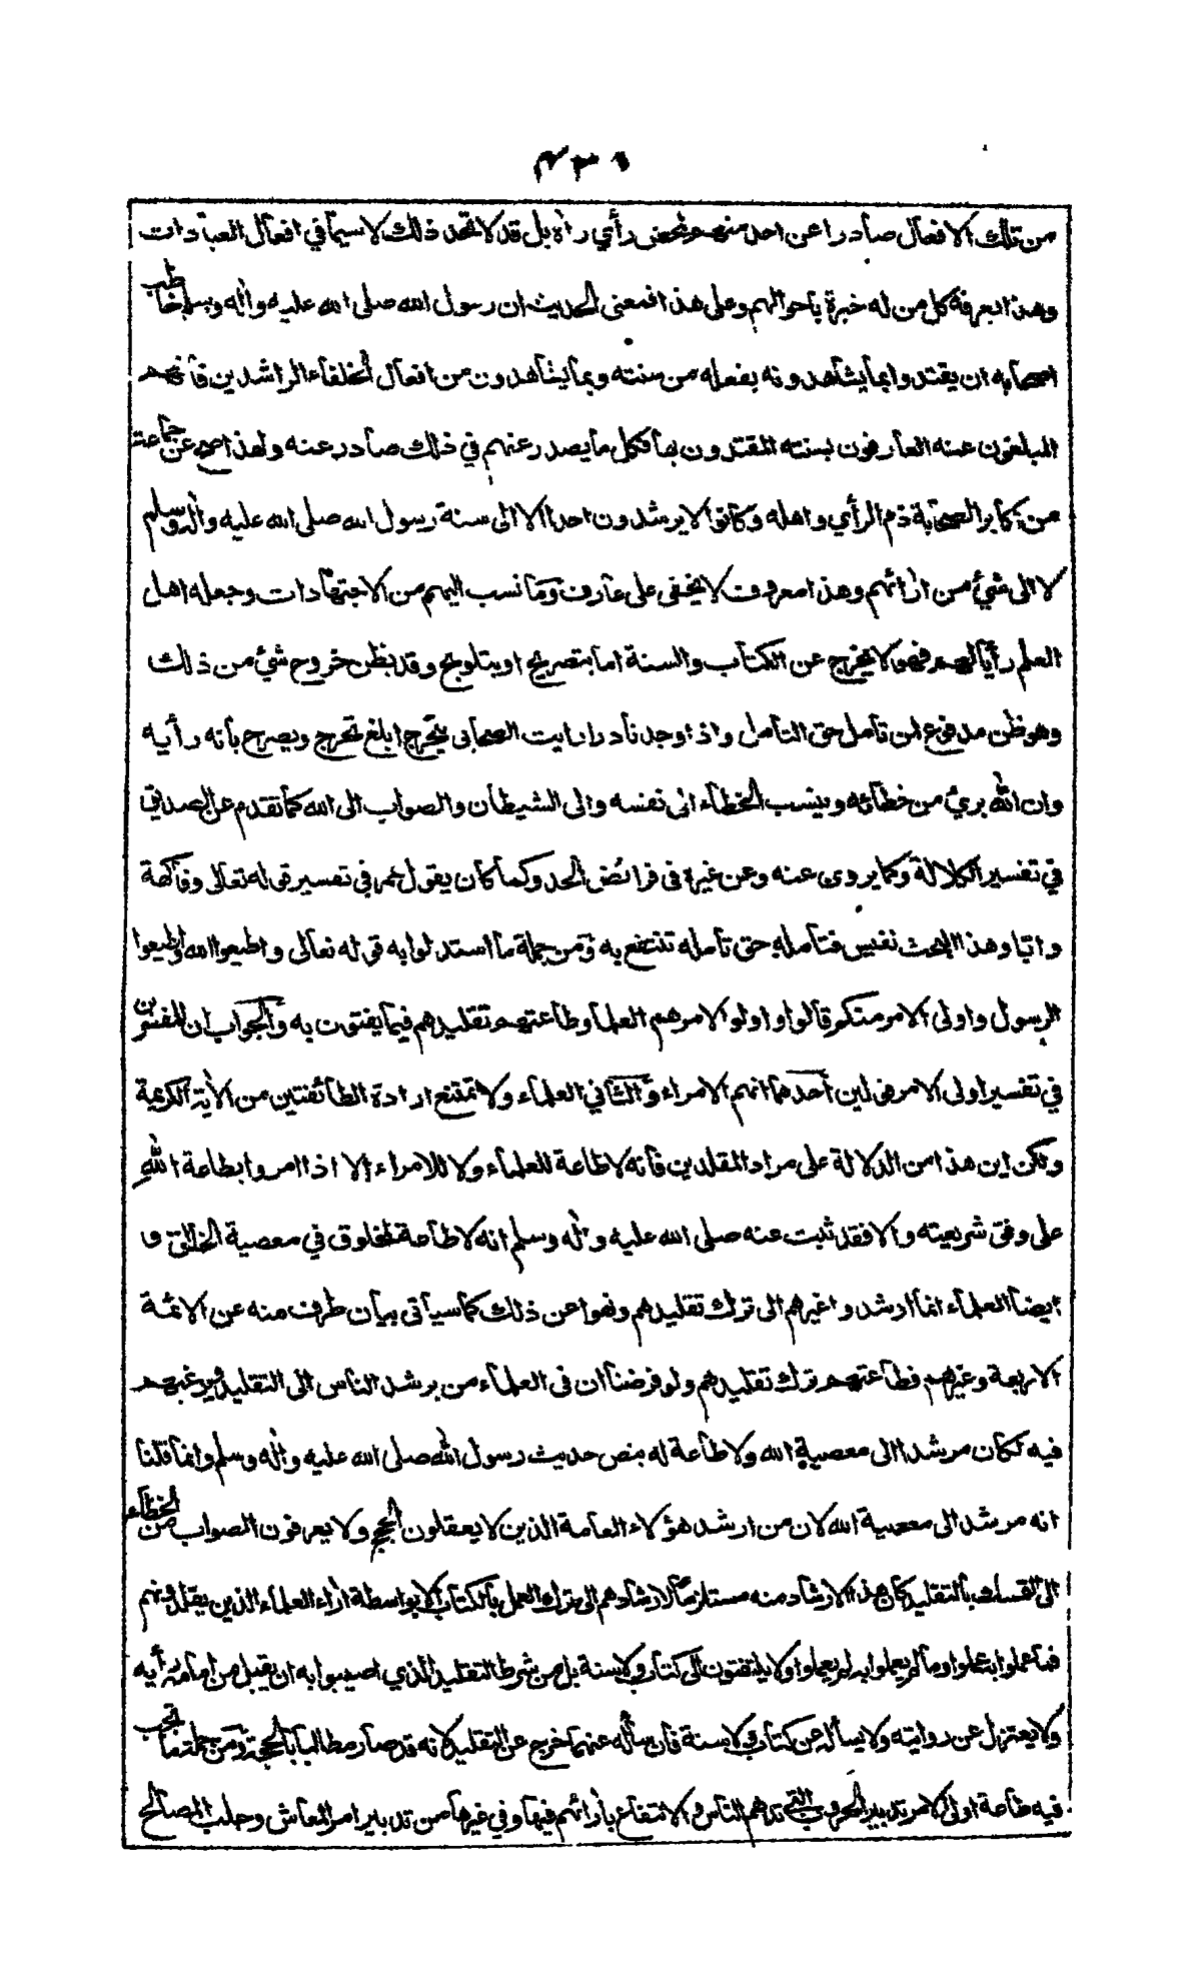 من تلك الافعال صادرا عن احد منهم بمحض رأي رأه بل قد لا تجد ذلك لا سيما في افعال العبادات
وهذا يعرفه كل من له خبرة باحوالهم وعلى هذا فمعنى الحديث ان رسول الله صلى الله عليه وأله وسلم خاطب
اصحابه ان يقتدوا بما يشاهدونه بفعله من سنته وبما يشاهدون من افعال الخلفاء الراشدين فانهم
المبلغون عنه العارفون بسنته المقتدون بها فكل ما يصدر عنهم في ذلك صادر عنه ولهذا صح عن جماعة
من اكابر الصحابة ذم الرأي واهله وكانوا لا يرشدون احدا الا الى سنة رسول الله صلى الله عليه وأله وسلم
لا الى شيء من أرائهم وهذا معروف لا يخفى على عارف وما نسب اليهم من الاجتهادات وجعله اهل
العلم رأيا لهم فهو لا يخرج عن الكتاب والسنة اما بتصريح او بتلويح وقد يظن خروج شيء من ذلك
وهو ظن مدفوع لمن تأمل حق التأمل واذا وجد نادرا رايت الصحابى يتحرج ابلغ تحرج ويصرح بانه رأيه
وان الله بريء من خطائه وينسب الخطاء الى نفسه والى الشيطان والصواب الى الله كما تقدم عن الصديق
في تفسير الكلالة وكما يروى عنه وعن غيره فى فرائض الجد وكما كان يقول عمر في تفسير قوله تعالى وفاكهة
وابا وهذا البحث نفيس فتأمله حق تأمله تنتفع به ومن جملة ما استدلوا به قوله تعالى واطيعوا الله واطيعوا
الرسول واولى الامر منكم قالوا واولو الامر هم العلماء وطاعتهم تقليدهم فيما يفتون به والجواب ان للمفسرين
في تفسير اولى الامر قولين أحدهما انهم الامراء والثاني العلماء ولا تمتنع ارادة الطائفتين من الأية الكريمة
ولكن اين هذا من الدلالة على مراد المقلدين فانه لا طاعة للعلماء ولا للامراء الا اذا امروا بطاعة الله
على وفق شريعته والا فقد ثبت عنه صلى الله عليه وأله وسلم انه لا طاعة لمخلوق في معصية الخالق و
ايضا العلماء انما ارشدوا غيرهم الى ترك تقليدهم ونهوا عن ذلك كما سيأتى بيان طرف منه عن الائمة
الاربعة وغيرهم فطاعتهم ترك تقليدهم ولو فرضنا ان فى العلماء من يرشد الناس الى التقليد ويرغبهم
فيه لكان مرشدا الى معصية الله ولا طاعة له بنص حديث رسول الله صلى الله عليه وأله وسلم وانما قلنا
انه مرشد الى معصية الله لان من ارشد هؤلاء العامة الذين لا يعقلون الحجج ولا يعرفون الصواب من الخطاء
الى التمسك بالتقليد كان هذا الارشاد منه مستلزما لارشادهم الى ترك العمل بالكتاب الا بواسطة أراء العلماء الذين يقلدونهم
فما عملوا به عملوا وما لم يعملوا به لم يعملوا ولا يلتفتون الى كتاب ولا سنة بل من شرط التقليد الذي اصيبوا به ان يقبل من امامه رأيه
ولا يعتزل عن روايته ولا يسأله عن كتاب ولا سنة فان سأله عنهما خرج عن التقليد لانه قد صار مطالبا بالحجة ومن جملة ما تجب
فيه طاعة اولى الامر تدبير الحروب التي تدهم الناس والانتفاع بأرائهم فيها وفي غيرها من تدبير امر المعاش وجلب المصالح